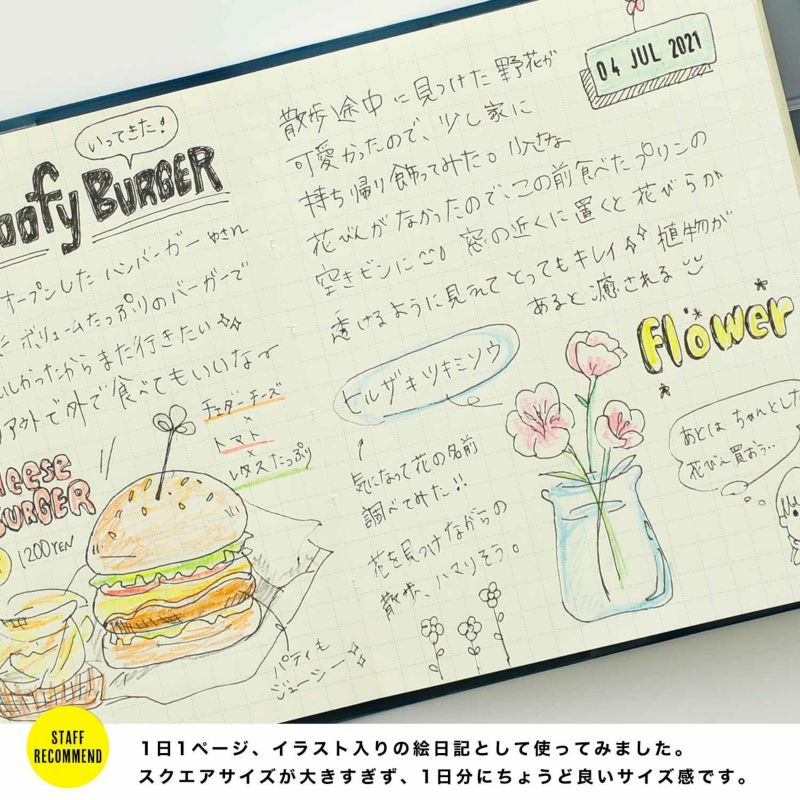 いってきた!
oofy BURGER
オープンしたハンバーガー
ボリュームたっぷりのバーガーで
しかったからまた行きたい
アウトで外で食べてもいいなー
チェダーチーズ
×
トマト
×
レタスたっぷり
heese
BURGER
1200YEN
パティも
ジューシー
04 JUL 2021
散歩途中に見つけた野花が
可愛かったので、少し家に
持ち帰り飾ってみた。
花びんがなかったので、この前食べたプリンの
空きビンに 窓の近くに置くと花びらが
透けるように見えてとってもキレイ 植物が
あると癒される
Flower
ヒルザキツキミソウ
↑
気になって花の名前
調べてみた!!
花を見つけながらの
散歩、ハマりそう。
あとはちゃんとした
花びん買おう…
STAFF
RECOMMEND
1日1ページ、イラスト入りの絵日記として使ってみました。
スクエアサイズが大きすぎず、1日分にちょうど良いサイズ感です。